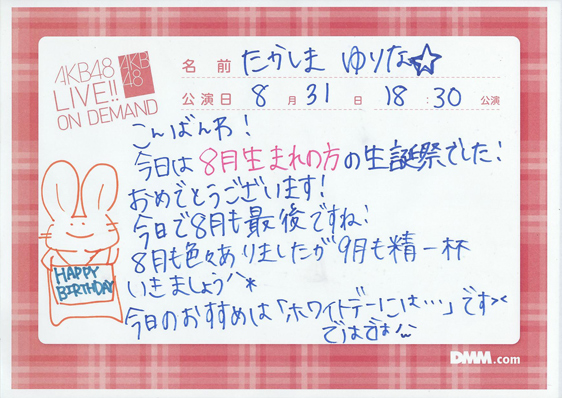 AKB48
LIVE!!
ON DEMAND
AKB
48
名前 たかしま ゆりな☆
公演日 8月31日 18:30 公演
こんばんわ!
今日は8月生まれの方の生誕祭でした!
おめでとうございます!
今日で8月も最後ですね!
8月も色々ありましたが9月も精一杯
いきましょう^*
今日のおすすめは「ホワイトデーには…」です><
ではでは^^
HAPPY
BIRTHDAY
DMM.com